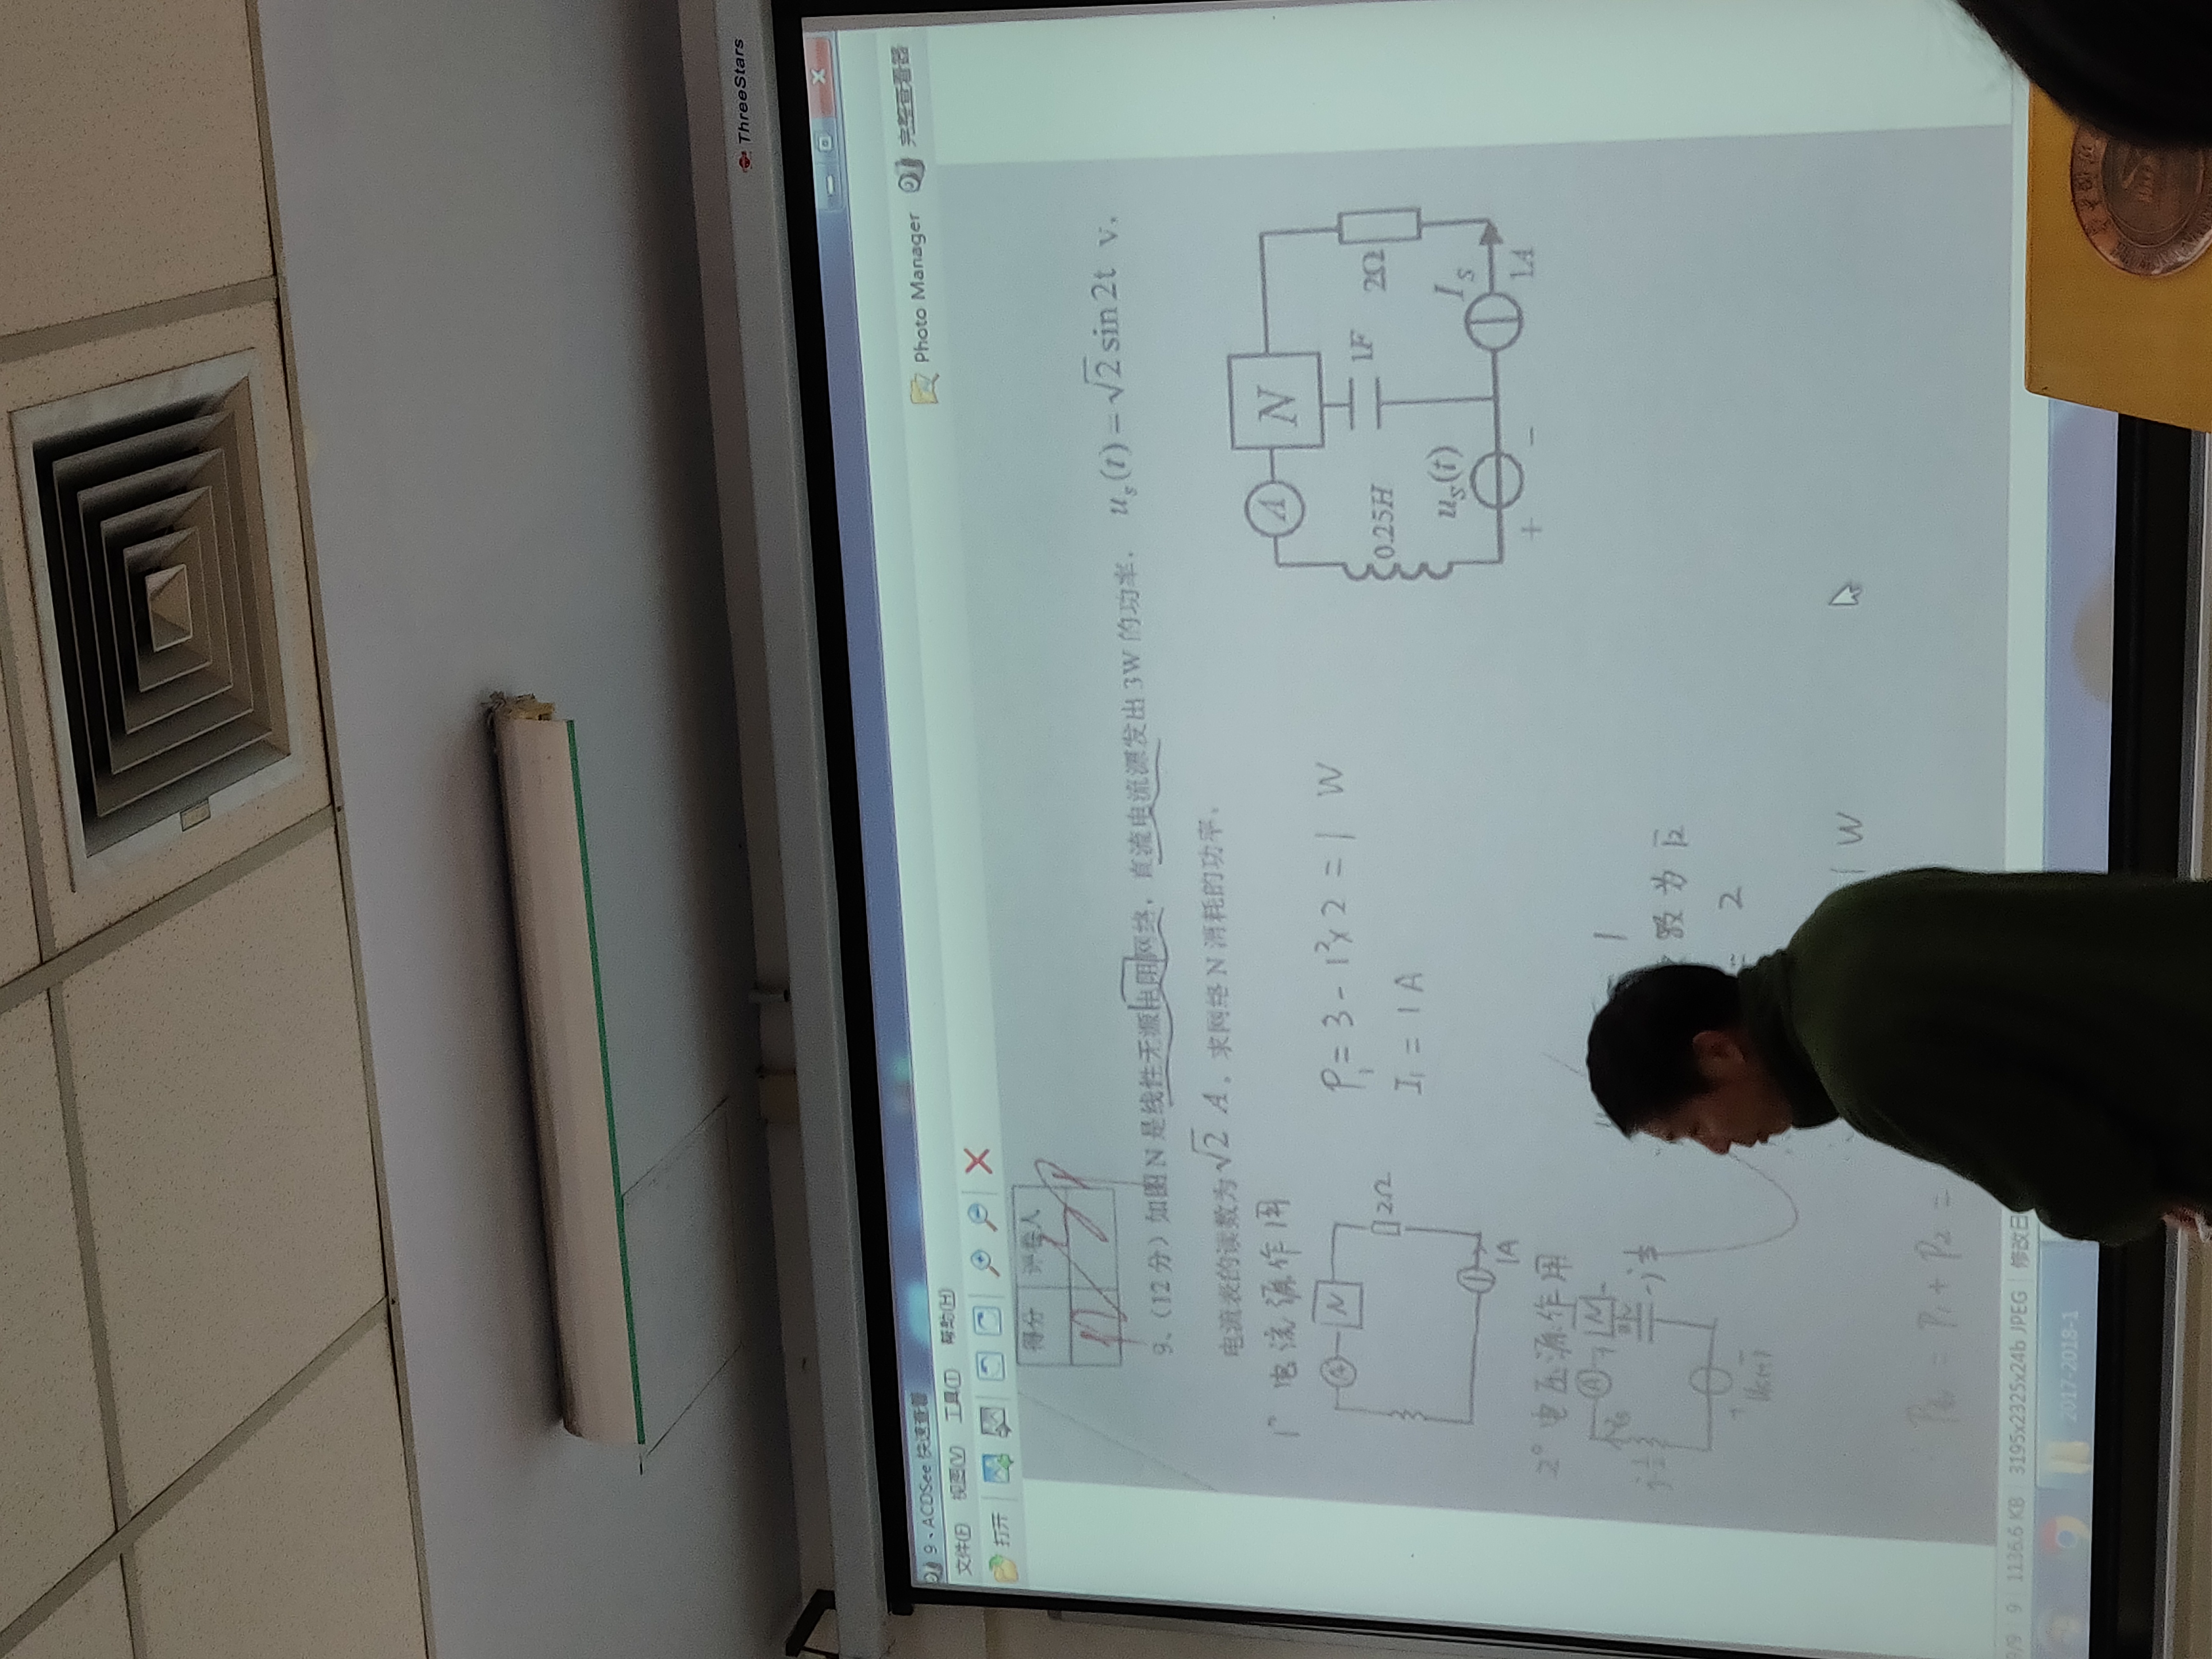 ThreeStars
9、ACDSee 快速查看
Photo Manager 完整查看器
文件(F) 视图(V) 工具(T) 帮助(H)
打开
得分 评卷人
9、（12 分）如图 N 是线性无源电阻网络，直流电流源发出 3W 的功率， u_s(t)=√2 sin 2t v,
电流表的读数为 √2 A，求网络 N 消耗的功率。
1° 电流源作用
A N
2Ω
1A
P₁ = 3 - 1² x 2 = 1 W
I₁ = 1 A
A N
0.25H 1F 2Ω
u_s(t) I_s
+ - 1A
2° 电压源作用
A N
= 1
数为 √2
= 2
1 W
= P₁ + P₂ =
9/9 9 1136.6 KB 3195x2325x24b JPEG 修改日
2017-2018-1